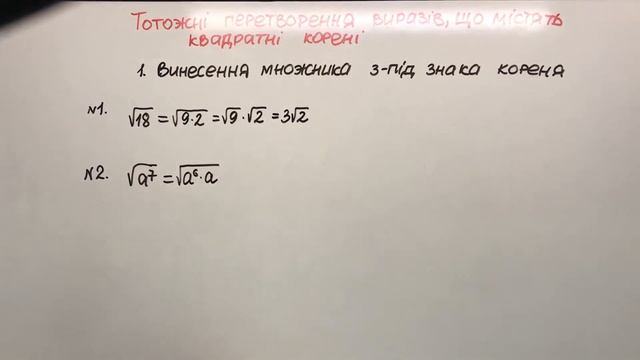 Тотожні перетворення виразів, що містять
квадратні корені
1. Винесення множника з-під знака кореня
№1. √18 = √9·2 = √9 · √2 = 3√2
№2. √a⁷ = √a⁶·a